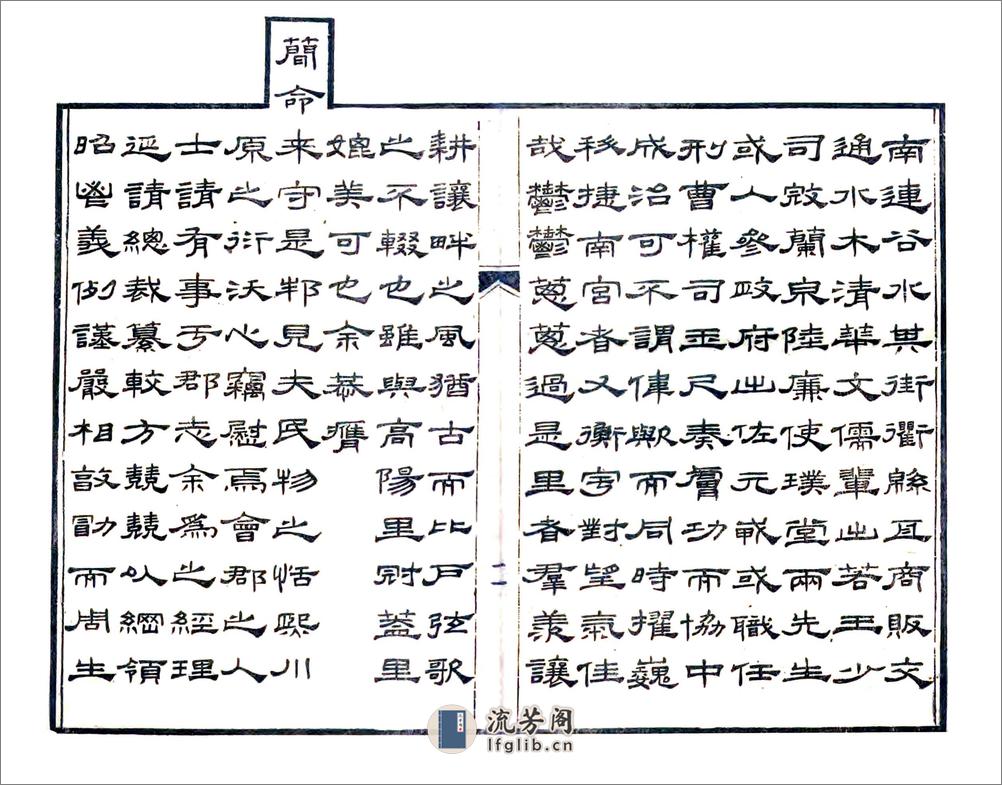 南連谷水其街衢緜亙商販交
通水木清華文儒輩出若王少
司寇蘭泉陸廉使璞堂兩先生
或入參政府出佐元戎或職任
刑曹權司玉尺奏膚功而協中
成治可不謂偉歟而同時擢巍
科捷南宮者又衡宇對望氣佳
哉鬱鬱蔥蔥過是里者羣羨讓
二
耕讓畔之風猶古而比戶弦歌
之不輟也雖與高陽里冠蓋里
媲美可也余恭膺
簡命来守是邦見夫民物之恬熙川
原之衍沃心竊慰焉會郡之人
士請有事于郡志余爲之經理
延請總裁纂較方兢兢以綱領
昭義例謹嚴相敦勖而周生
流芳阁
lfglib.cn